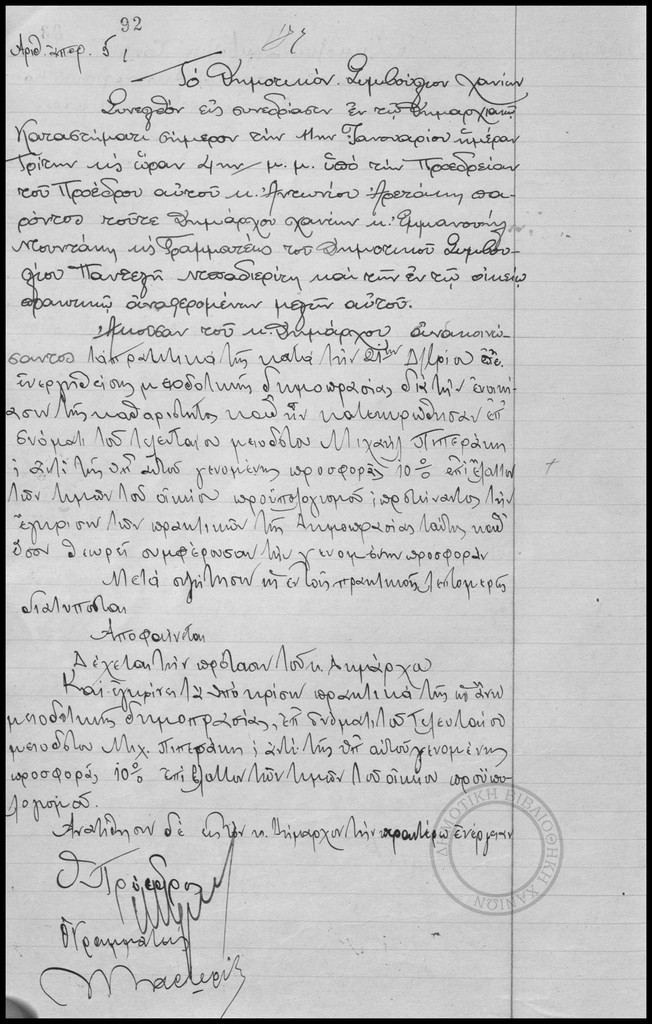 92
Αριθ. περ. 5
Τό Δημοτικόν Συμβούλιον Χανίων
Συνελθόν εἰς συνεδρίασιν ἐν τῷ Δημαρχιακῷ
Καταστήματι σήμερον τήν 11ην Ἰανουαρίου ἡμέραν
Τρίτην κ ὥραν 4ην μ.μ. ὑπό τήν Προεδρείαν
τοῦ Προέδρου αὐτοῦ κ. Ἀντωνίου Ἀρετάκη πα-
ρόντος τοῦτε Δημάρχου Χανίων κ. Ἐμμανουήλ
Μουντάκη κ Γραμματέως τοῦ Δημοτικοῦ Συμβου-
λίου Παντελῆ καί τῶν ἐν τῷ οἰκείῳ
πρακτικῷ ἀναφερομένων μελῶν αὐτοῦ.
Ἀκοῦσαν τοῦ κ. Δημάρχου ἀνακοινώ-
σαντος τά πρακτικά τῆς κατά τήν 21ην
ἐνεργηθείσης μειοδοτικῆς δημοπρασίας διά τήν ἐνοικί-
ασιν τῆς καθαριότητος καθ' ἥν κατεκυρώθησαν ἐπ'
ὀνόματι τοῦ τελευταίου μειοδότου Μιχαήλ Πιπεράκη
ἀντί τῆς ὑπ' αὐτοῦ γενομένης προσφορᾶς 10% ἐπί ἔλαττον
τῶν τιμῶν τοῦ οἰκείου προϋπολογισμοῦ προτείναντος τήν
ἔγκρισιν τῶν πρακτικῶν τῆς Δημοπρασίας ταύτης καθ'
ὅσον θεωρεῖ συμφέρουσαν τήν γενομένην προσφοράν
Μετά συζήτησιν ὡς ἐν τοῖς πρακτικοῖς λεπτομερῶς
διατυποῦται
Αποφαίνεται
Δέχεται τήν πρότασιν τοῦ κ Δημάρχου
Καί ἐγκρίνει τά ὑπό κρίσιν πρακτικά τῆς ὡς ἄνω
μειοδοτικῆς δημοπρασίας, ἐπ' ὀνόματι τοῦ τελευταίου
μειοδότου Μιχ. Πιπεράκη ἀντί τῆς ὑπ' αὐτοῦ γενομένης
προσφορᾶς 10% ἐπί ἔλαττον τῶν τιμῶν τοῦ οἰκείου προϋπο-
λογισμοῦ.
Ἀνατίθησιν δέ εἰς τόν κ. Δήμαρχον τήν περαιτέρω ἐνέργειαν
Ὁ Πρόεδρος
Ὁ Γραμματεύς
ΔΗΜΟΤΙΚΗ ΒΙΒΛΙΟΘΗΚΗ ΧΑΝΙΩΝ